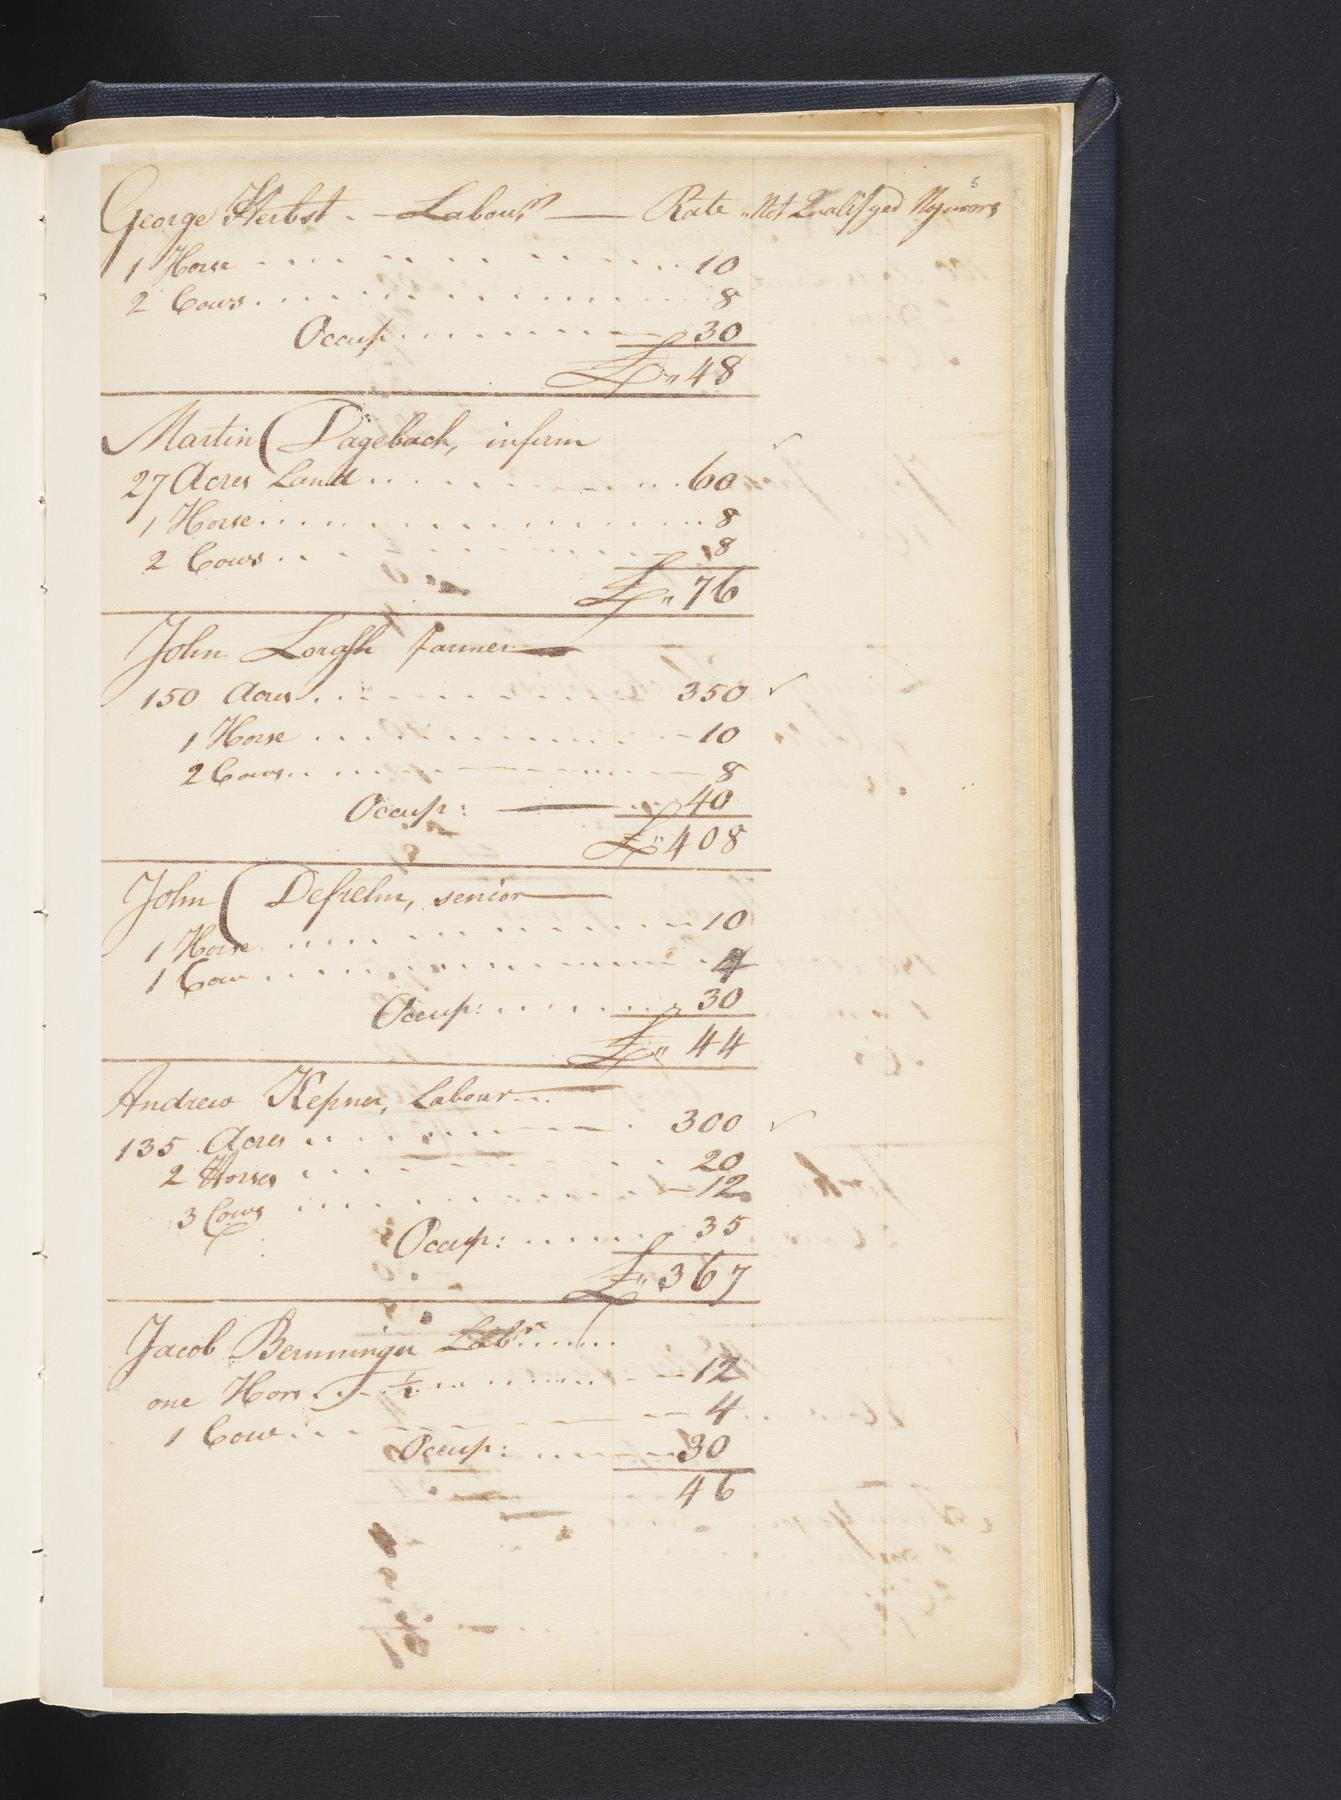 5
George Herbst - Labourr Rate Not Qualifyed
1 Horse 10
2 Cows 8
Occup 30
£ 48
Martin Dagebach, infirm
27 Acres Land 60
1 Horse 8
2 Cows 8
£ 76
John Loragh Farmer
150 Acres 350
1 Horse 10
2 Cows 8
Occup: 40
£ 408
John Defrehn, senior
1 Horse 10
1 Cow 4
Occup: 30
£ 44
Andrew Kepner, Labour
135 Acres 300
2 Horses 20
3 Cows 12
Occup: 35
£ 367
Jacob Bernninger Labr
one Hors 12
1 Cow 4
Occup: 30
46